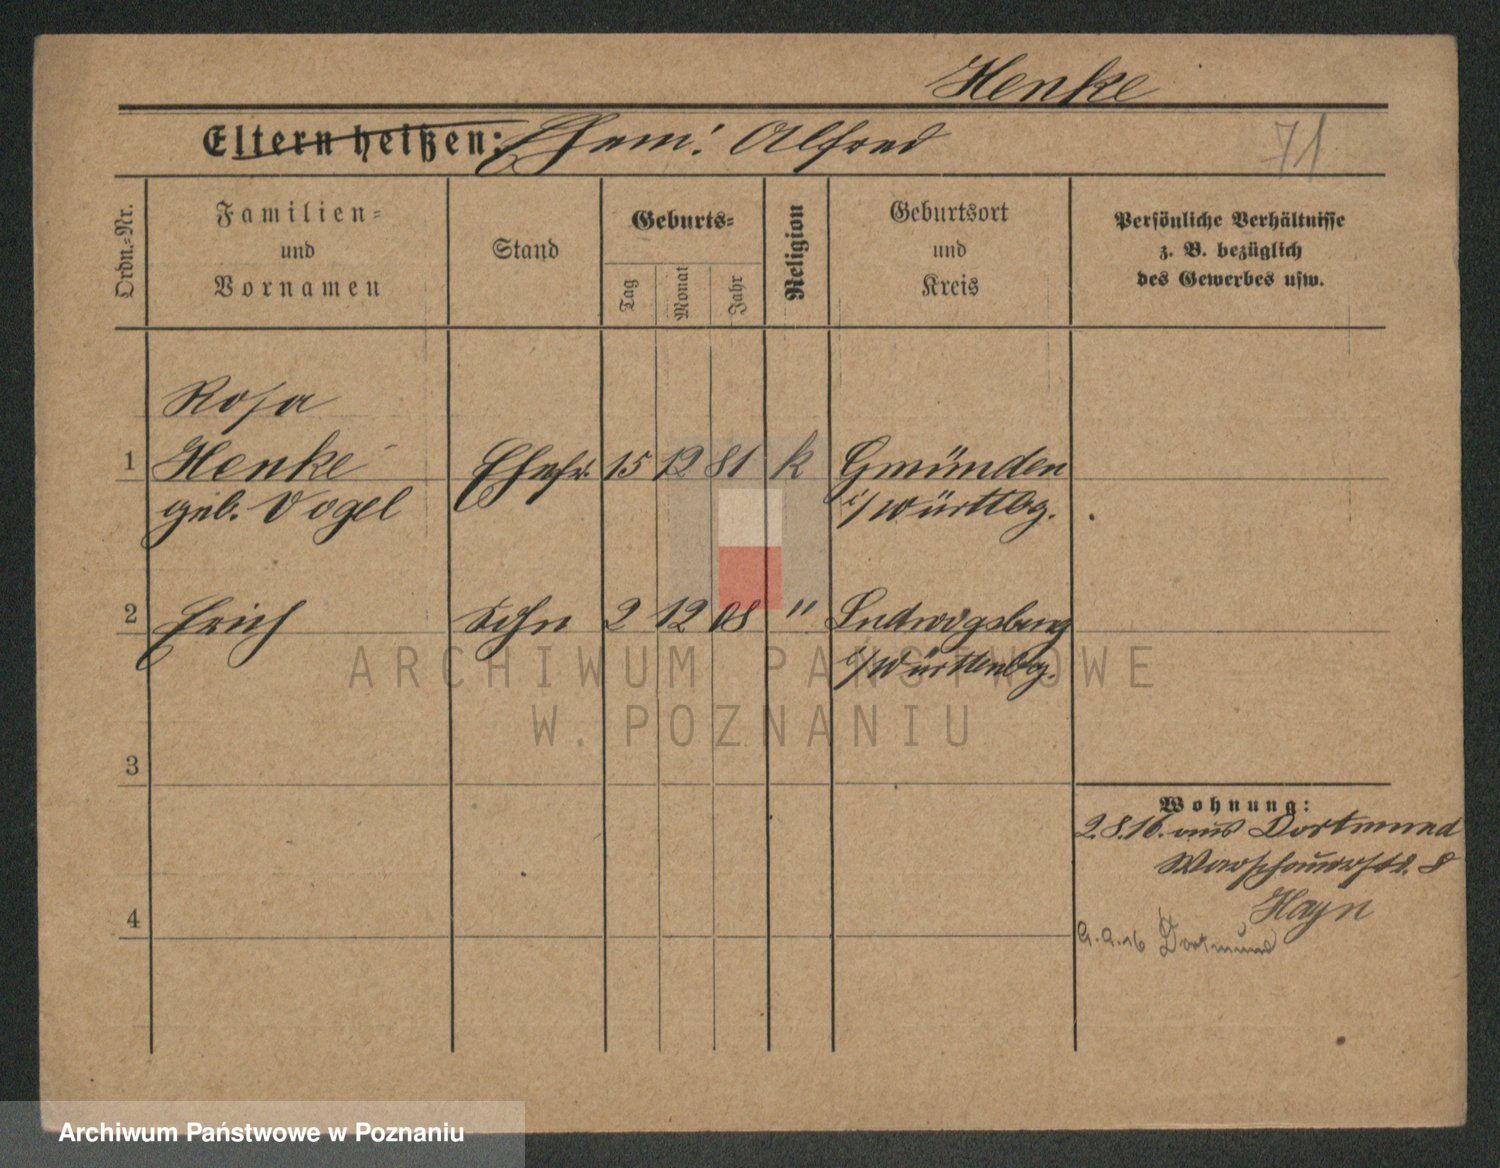 Henke
Eltern heißen: Ehem: Alfred
71
Ordn.=Nr.
Familien=
und
Vornamen
Stand
Geburts=
Tag
Monat
Jahr
Religion
Geburtsort
und
Kreis
Persönliche Verhältnisse
z. B. bezüglich
des Gewerbes usw.
Rosa
1 Henke Ehefr. 15 12 81 k Gmünden
geb. Vogel i/Württbg.
2 Erich Sohn 2 12 08 " Ludwigsburg
i/Württenbg.
ARCHIWUM PAŃSTWOWE
W POZNANIU
3
Wohnung:
2.8.16. aus Dortmund
Warschauerstr. 8
Hayn
4
9.9.16 Dortmund
Archiwum Państwowe w Poznaniu